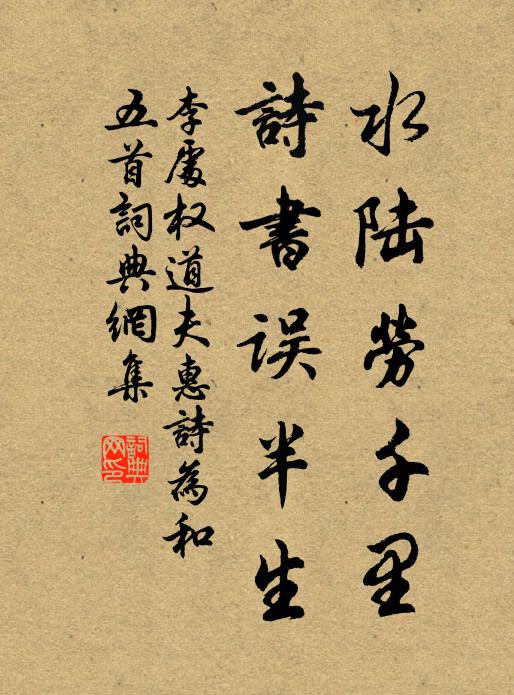 水陆勞千里
詩書误半生
李處权道夫惠詩為和
五首詞典網集
詞典
网印